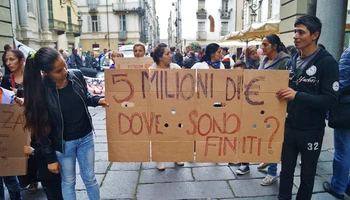 5 MILIONI DI €
DOVE SONO
FINITI ?
32